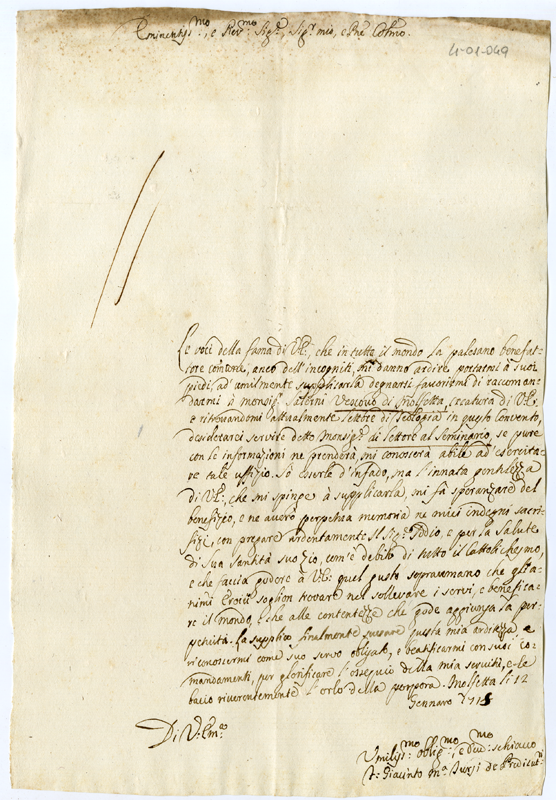 Eminentiss.mo, e Rev.mo Sig.re, Sig.r mio, e Pne Colmo.
4-01-049
Le voci della fama di V.E., che in tutto il mondo la palesano benefat-
tore comune, anco dell'incogniti, mi danno ardire portarmi à suoi
piedi, ad umilmente supplicarla degnarsi favorirmi di raccoman-
darmi à monsig.r Salerni Vescovo di Molfetta, creatura di V.E.,
e ritrovandomi attualmente lettore di Teologia in questo convento,
desiderarei servire detto Monsig.r di lettore al Seminario, se pure
con le informazioni ne prenderà, mi conoscerà abile ad esercita-
re tale uffizio. Sò esserle d'infado, ma l'innata gentilezza
di V.E., che mi spinge à supplicarla, mi fà speranzare del
benefizio, e ne averò perpetua memoria ne miei indegni sacri-
fizj, con pregare ardentemente il Sig.r Iddio, e per la salute
di Sua Santità suo zio, com'è debito di tutto il Cattolichesmo,
e che faccia godere à V.E. quel gusto sopraumano che gl'a-
nimi Eroici soglion trovare nel sollevare i servi, e beneficа-
re il mondo, e che alle contentezze che gode aggiunga la per-
petuità. La supplico finalmente scusare questa mia arditezza, e
riconoscermi come suo servo obligato, e beatificarmi con suoi co-
mandamenti, per glorificare l'ossequio della mia servitù, e le
bacio riverentemente l'orlo della porpora. Molfetta li 12
Gennaro 171
Di V.E. Em.a
Umiliss.mo oblig.mo, e dev.mo schiavo
F. Giacinto M.a de Predicat.ri